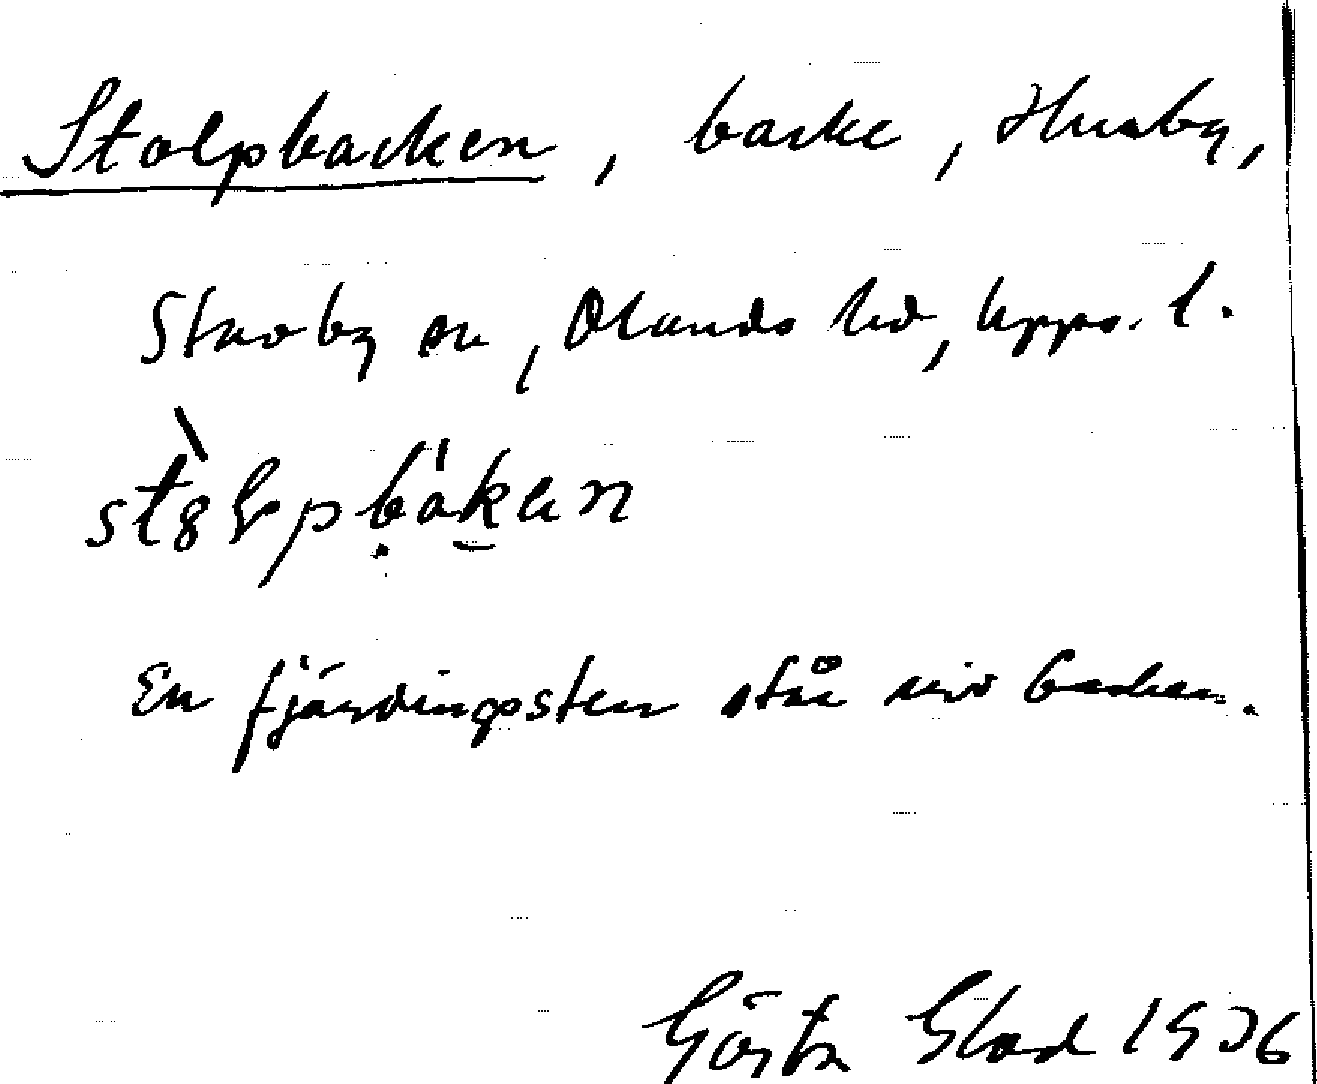 Stolpbacken, backe, Husby,
Stavby sn, Olands hd, Upps. l.
En fjärdingsten står vid backen.
Gösta Glad 1936